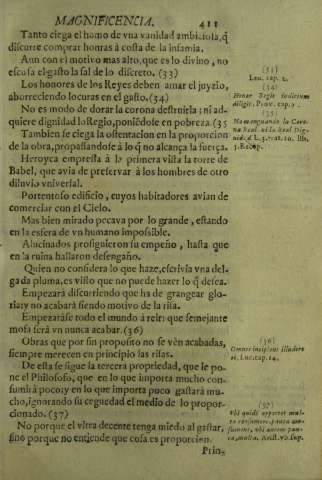 MAGNIFICENCIA. 411
Tanto ciega el homo de vna vanidad ambiciosa, q̃
discurre comprar honras à costa de la infamia.
Aun con el motivo mas alto, que es lo divino, no
escusa el gasto la sal de lo discreto. (33)
Los honores de los Reyes deben amar el juyzio,
aborreciendo locuras en el gasto. (34)
No es modo de dorar la corona destruirla; ni ad-
quiere dignidad lo Regio, poniẽdose en pobreza. (35
Tambien se ciega la ostentacion en la proporcion
de la obra, propasandose à lo q̃ no alcança la fuerça.
Heroyca empressa à la primera vista la torre de
Babel, que avia de preservar à los hombres de otro
diluvio vniversal.
Portentoso edificio, cuyos habitadores avian de
comerciar con el Cielo.
Mas bien mirado pecava por lo grande, estando
en la esfera de vn humano impossible.
Alucinados prosiguieron su empeño, hasta que
en la ruina hallaron desengaño.
Quien no considera lo que haze, escrivia vna del-
gada pluma, es visto que no puede hazer lo q̃ desea.
Empezarà discurriendo que ha de grangear glo-
ria; y no acabarà siendo motivo de la risa.
Empezaràse todo el mundo à reir: que semejante
mofa serà vn nunca acabar. (36)
Obras que por sin proposito no se vèn acabadas,
siempre merecen en principio las risas.
De esta se sigue la tercera propriedad, que le po-
ne el Philosofo, que en lo que importa mucho con-
sumirà poco; y en lo que importa poco gastarà mu-
cho, ignorando su ceguedad el medio de lo propor-
cionado. (37)
No porque el vltra decente tenga miedo al gastar,
sino porque no entiende que cosa es proporcion.
Prin-
(33)
Leu. cap. 2.
(34)
Honor Regis iudicium
diligit. Prov. cap. 1.
(35)
Na menguando la Coro-
na Real, ni la Real Dig-
nidad. L. 3. tit. 10. lib.
5. Recop.
(36)
Omnes incipiant illudere
ei, Luc. cap. 14.
(37)
Vbi quidẽ oportet mul-
ta consumere, pauca con-
sumens, vbi autem pau-
ca, multa. Arist. vb. sup.